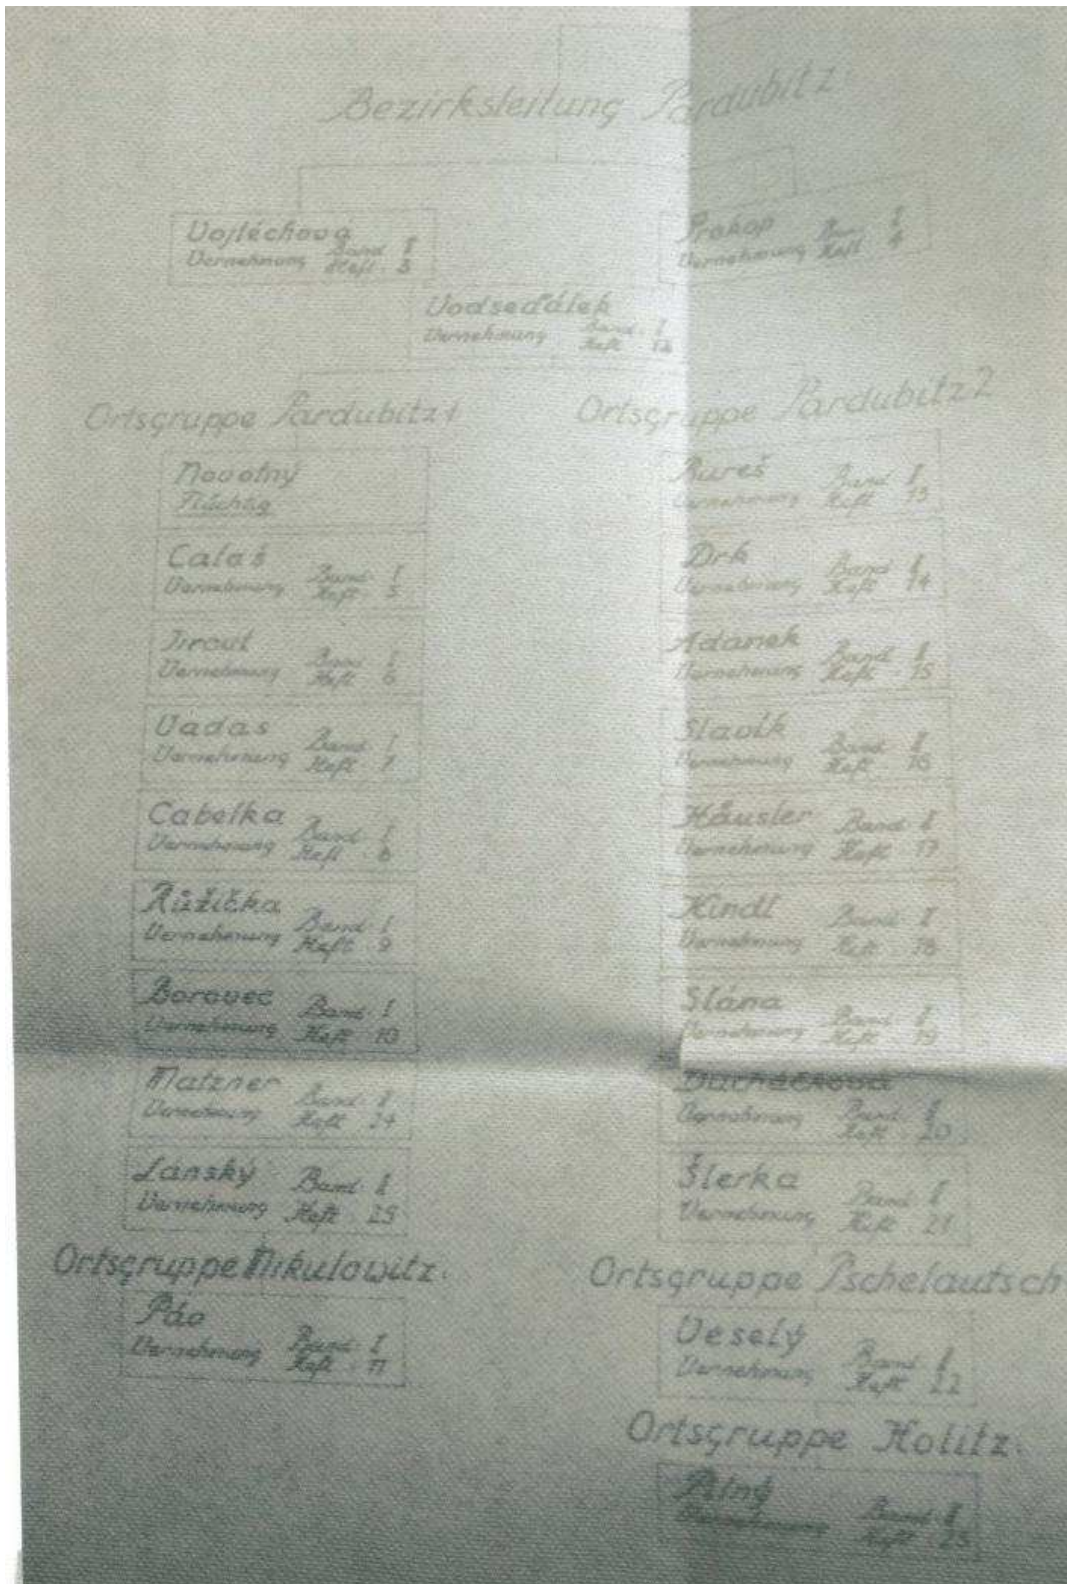 Bezirksleitung Pardubitz.
Vojtěchová
Vernehmung Band I
Heft 3
Prokop
Vernehmung Band I
Heft 4
Vodseďálek
Vernehmung Band I
Heft 12
Ortsgruppe Pardubitz 1
Ortsgruppe Pardubitz 2
Novotný
flüchtig
Calaš
Vernehmung Band I
Heft 5
Jirout
Vernehmung Band I
Heft 6
Vadas
Vernehmung Band I
Heft 7
Cabelka
Vernehmung Band I
Heft 8
Růžička
Vernehmung Band I
Heft 9
Borovec
Vernehmung Band I
Heft 10
Matzner
Vernehmung Band II
Heft 24
Lánský Band II
Vernehmung Heft 25
Ortsgruppe Mikulowitz.
Páv
Vernehmung Band I
Heft 11
Bureš Band II
Vernehmung Heft 13
Drk Band II
Vernehmung Heft 14
Adamek Band II
Vernehmung Heft 15
Slavík Band II
Vernehmung Heft 16
Häusler Band II
Vernehmung Heft 17
Kindl Band II
Vernehmung Heft 18
Slána Band II
Vernehmung Heft 19
Ducháčková
Vernehmung Band II
Heft 20
Šlerka Band II
Vernehmung Heft 21
Ortsgruppe Pschelautsch
Veselý
Vernehmung Band II
Heft 22
Ortsgruppe Holitz.
Pilný Band II
Vernehmung Heft